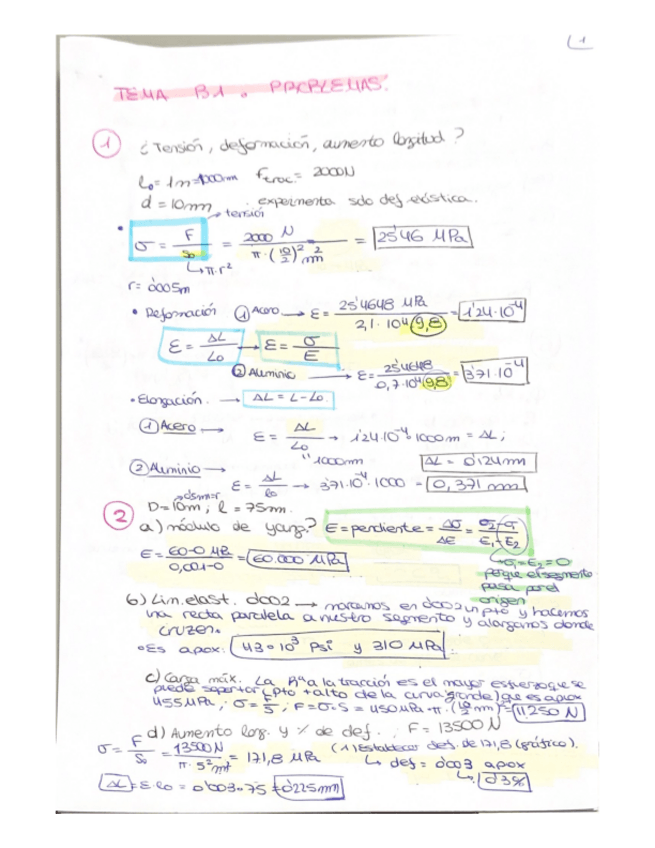 1
TEMA B.1. PROBLEMAS.
① ¿Tensión, deformación, aumento longitud?
l₀ = 1m = 1000mm Ftrac. = 2000N
d = 10mm · experimenta solo def. elástica.
→ tensión
• σ = F/S₀ = 2000 N / π·(10/2)² mm² = 25'46 MPa
↳ π·r²
r = 0'005m
• Deformación ① Acero → ε = 25'4648 MPa / 2,1·10⁴(9,8) = 1'24·10⁻⁴
ε = ΔL/L₀ → ε = σ/E
② Aluminio → ε = 25'4648 / 0,7·10⁴(9,8) = 3'71·10⁻⁴
• Elongación. → ΔL = L - L₀
① Acero → ε = ΔL/L₀ → 1'24·10⁻⁴·1000m = ΔL;
" 1000mm ΔL = 0'124mm
② Aluminio → ε = ΔL/l₀ → 3'71·10⁻⁴·1000 = 0,371 mm
② D = 10m; l = 75mm.
a) módulo de yang? E = pendiente = Δσ/Δε = σ₂-σ/ε₁-ε₂
E = 60-0 MPa / 0,001-0 = 60.000 MPa
↳ σ₁ = ε₂ = 0
porque el segmento
pasa por el
origen
b) Lim. elast. 0'002 → marcamos en 0'002 un pto y hacemos
una recta paralela a nuestro segmento y alargamos donde
cruzen.
• Es aprox: 43·10³ Psi y 310 MPa
c) Carga máx. La Rª a la tracción es el mayor esfuerzo que se
puede soportar (pto + alto de la curva grande) que es aprox
455MPa, σ = F/S; F = σ·S = 450MPa·π·(10/2 mm)² = 11.250 N
d) Aumento long. y % de def.; F = 13500 N
σ = F/S₀ = 13500N / π·5² m² = 171,8 MPa (1) Establecer def. de 171,8 (gráfico).
↳ def = 0'003 aprox
↳ 0'3%
ΔL = ε·l₀ = 0'003·75 = 0'225mm